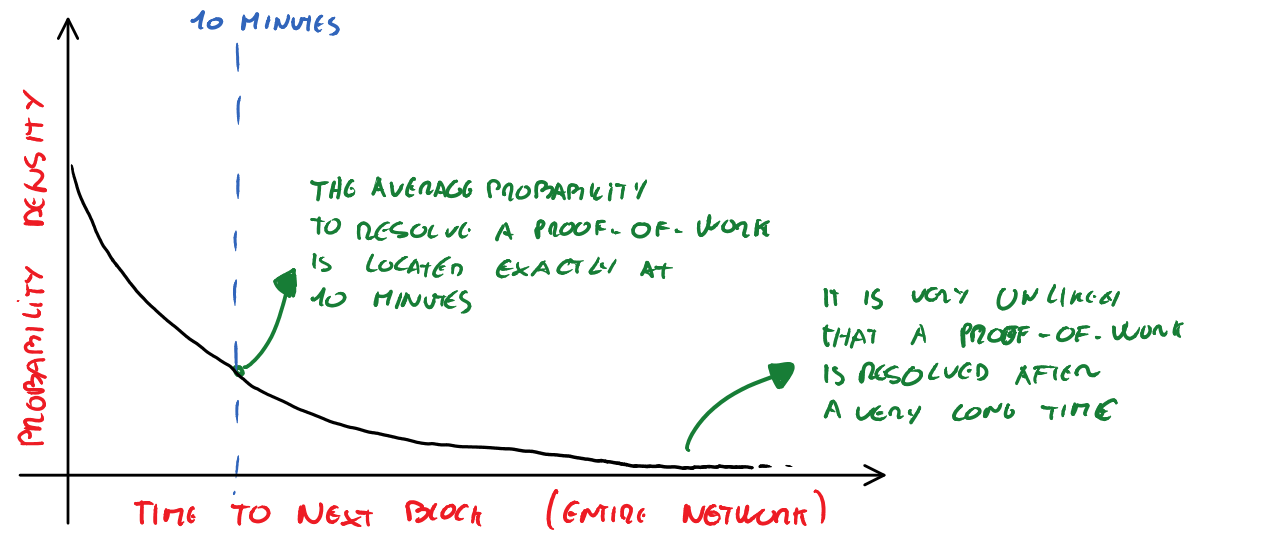 10 MINUTES
PROBABILITY DENSITY
THE AVERAGE PROBABILITY
TO RESOLVE A PROOF-OF-WORK
IS LOCATED EXACTLY AT
10 MINUTES
IT IS VERY UNLIKELY
THAT A PROOF-OF-WORK
IS RESOLVED AFTER
A VERY LONG TIME
TIME TO NEXT BLOCK (ENTIRE NETWORK)